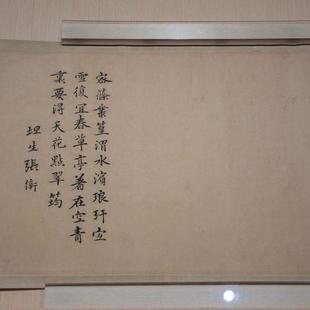 藻叢篁渭水濱琅玕宜
雪復宜春草亭著在空青
裏要得天花點翠筠
坦生張衡